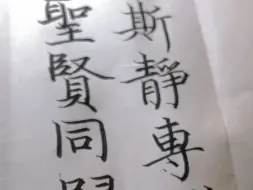 斯靜專
聖賢同